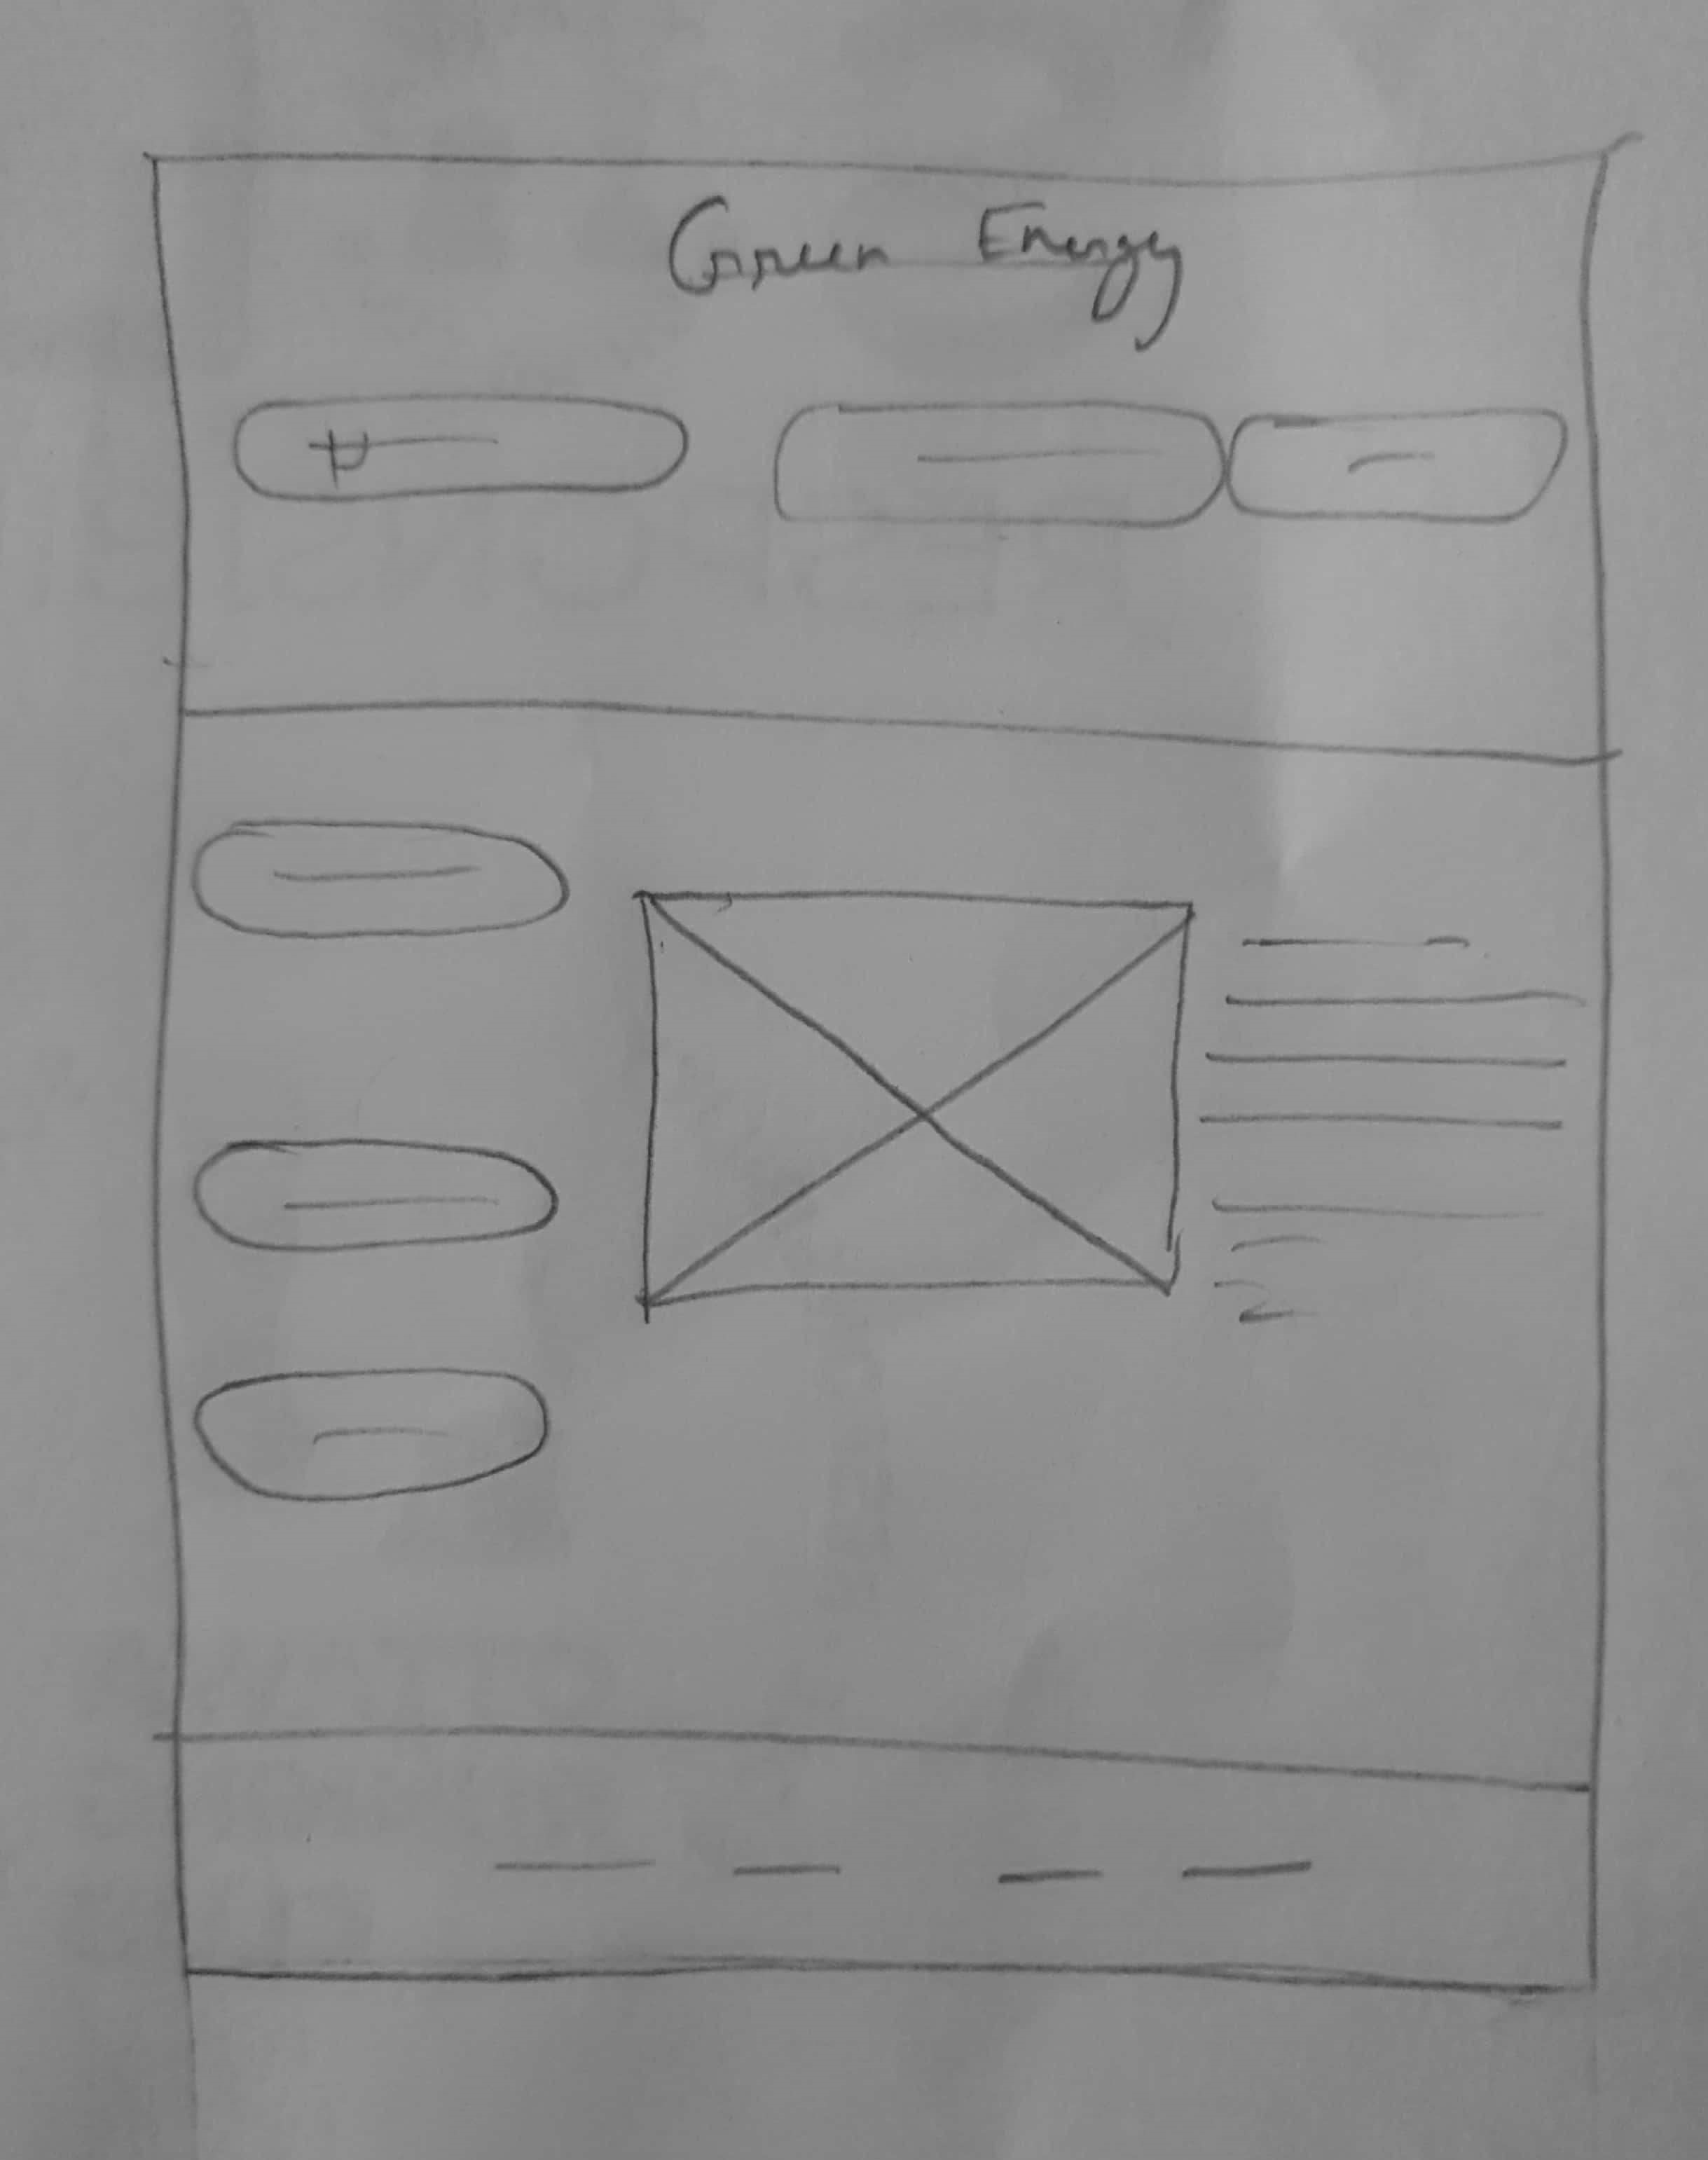 Green Energy